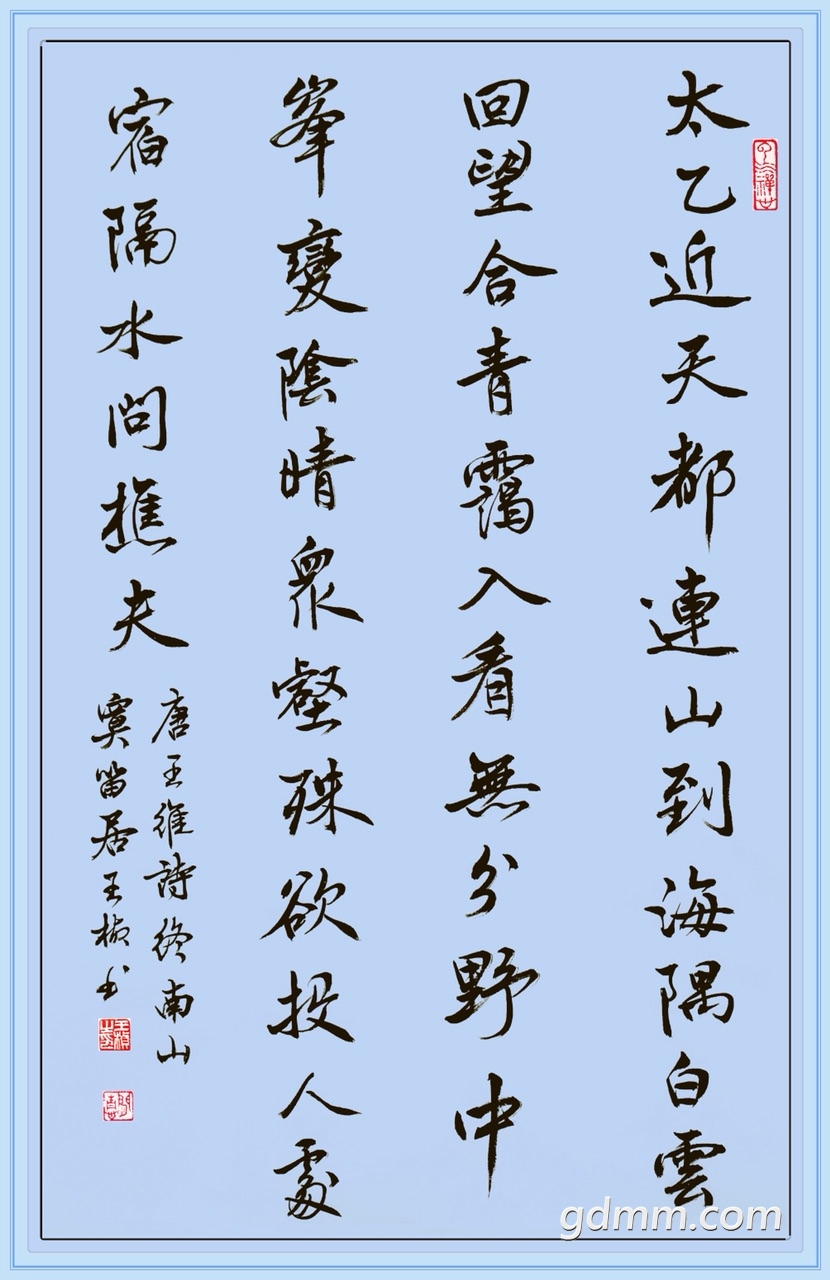 太乙近天都連山到海隅白雲
回望合青靄入看無分野中
峯變陰晴衆壑殊欲投人處
宿隔水問樵夫
唐王維詩終南山
笛居王楨书
gdmm.com